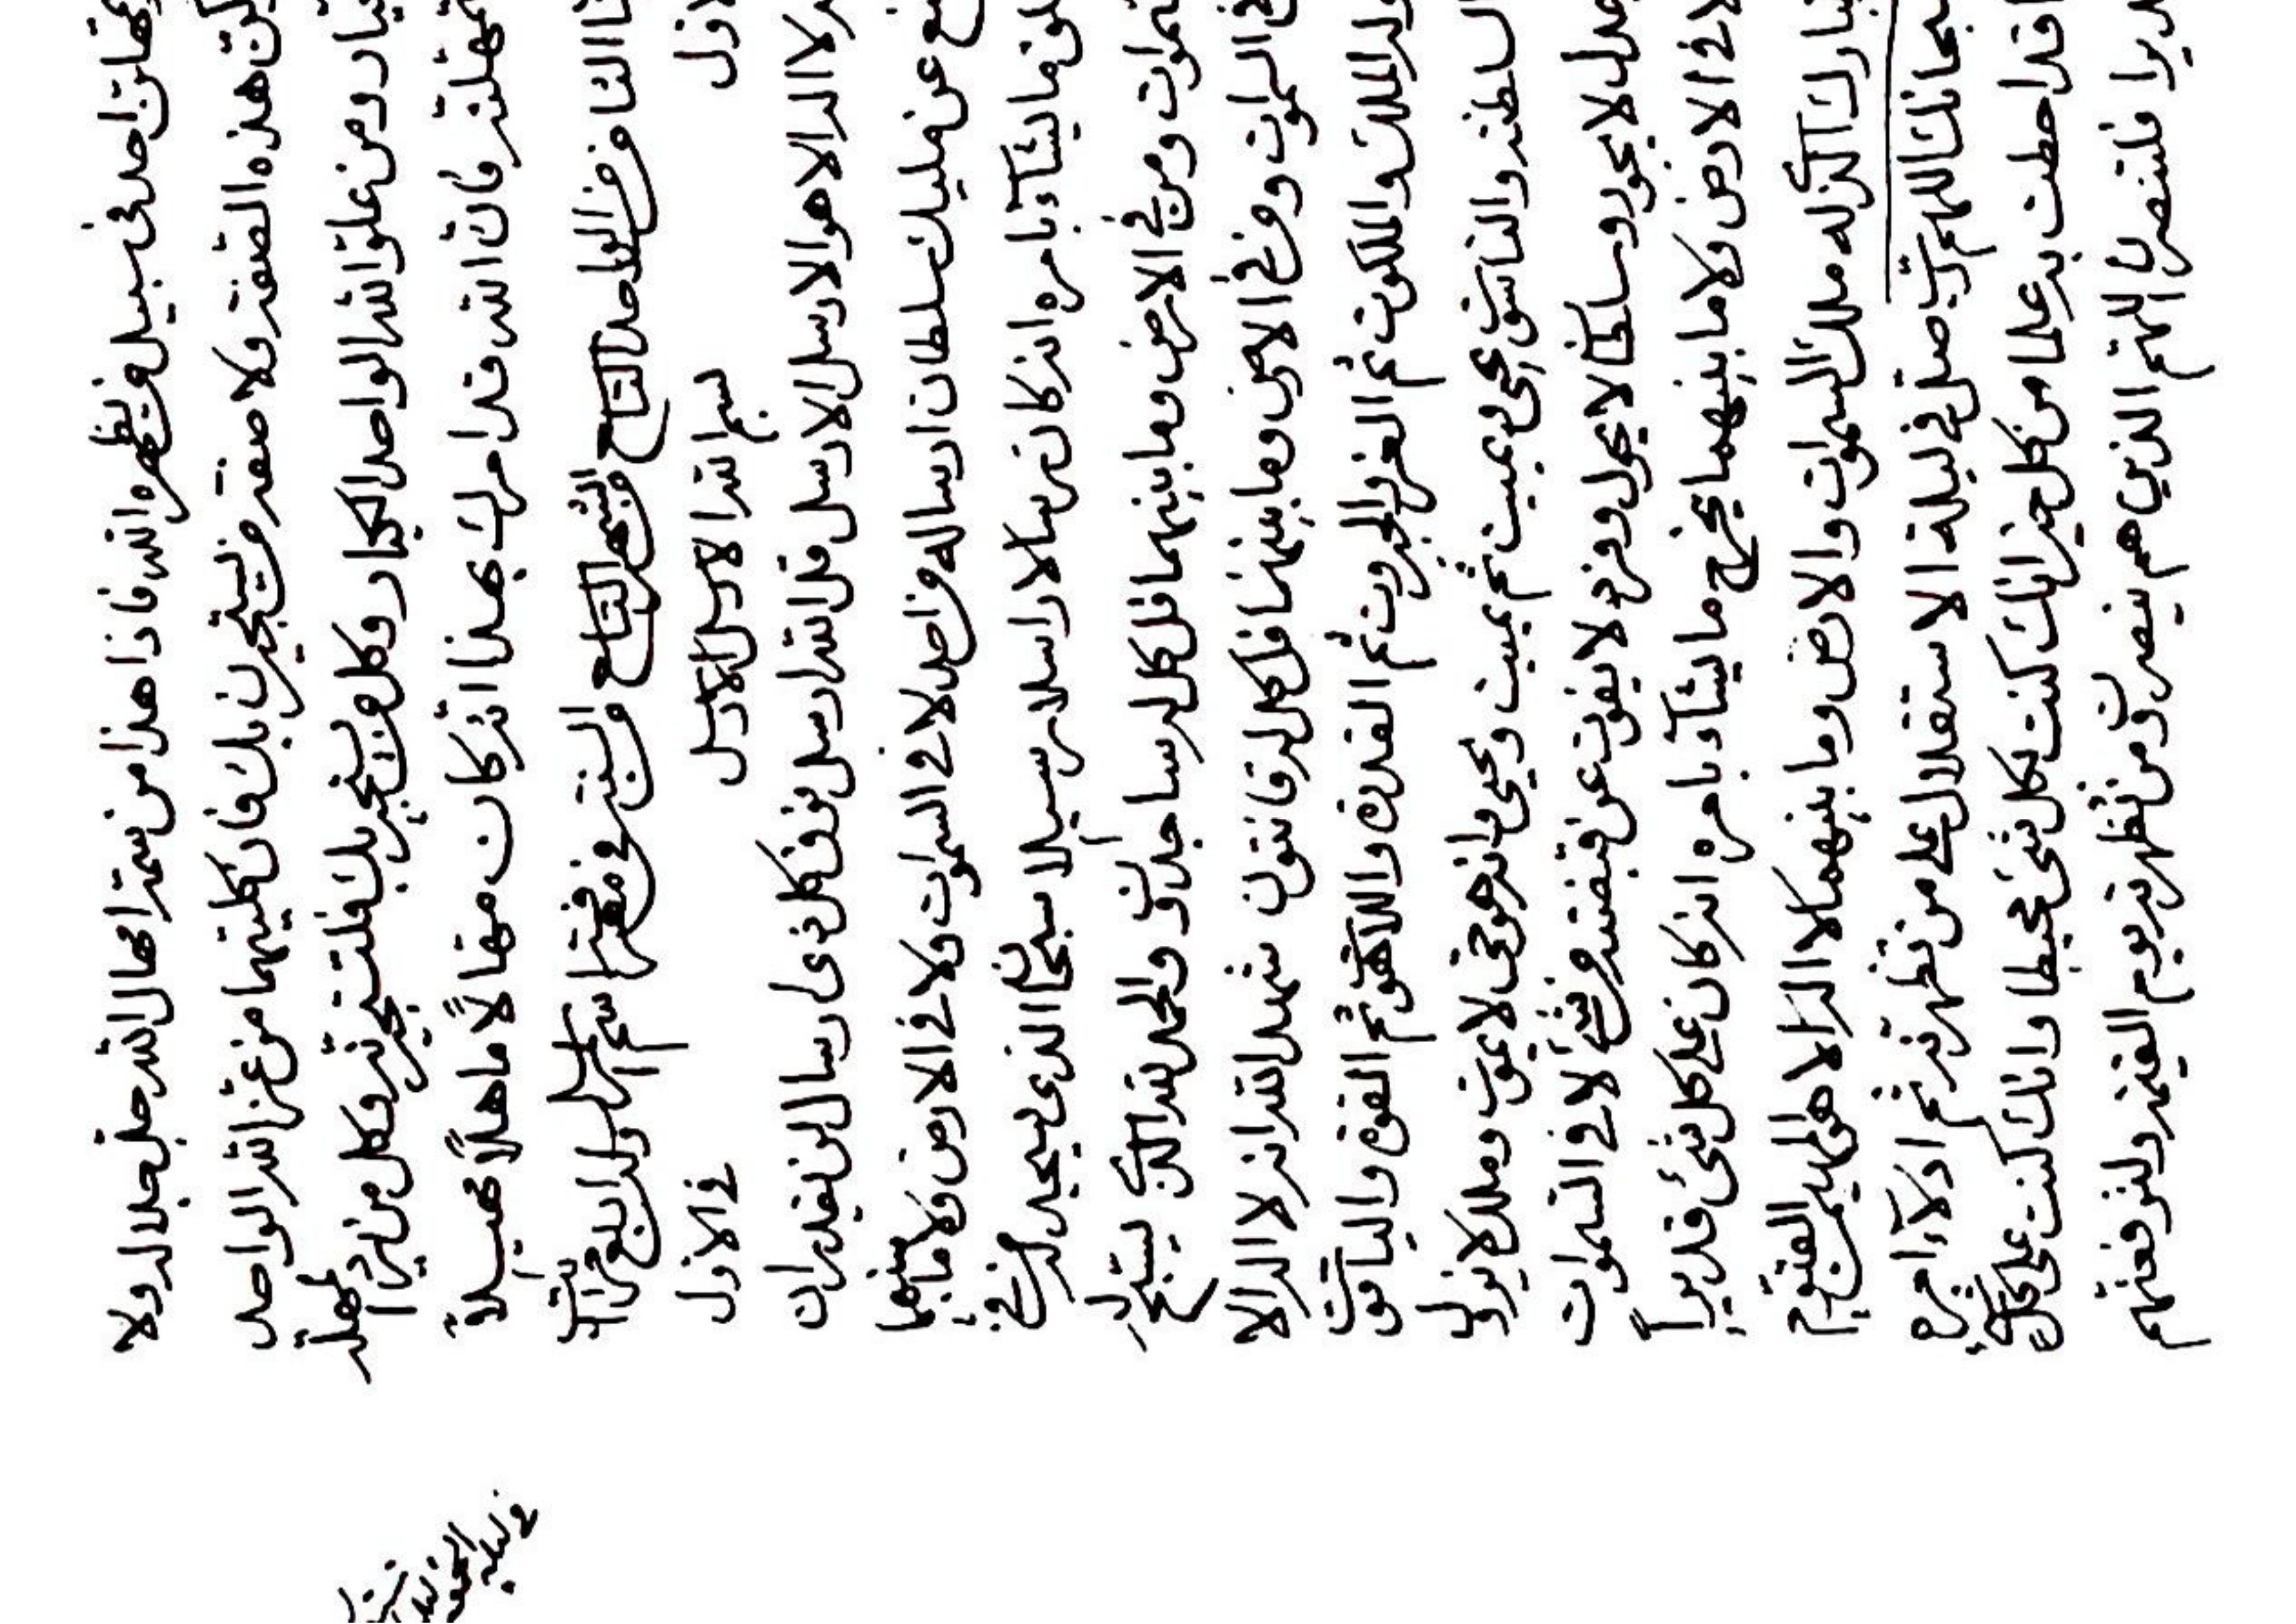 احد في سبيل ويظهره الله فاذا هذا من سمة امهال الله جل جلاله ولا
هذه الصفة ولا صفة ويستجيرن بك فان كليتهما من عند الله الواحد
ومن علو الله الواحد الجبار وكل من يستجير بك فلتستجيرنه وكل من
تمهلنه فان الله قد امرك بهذا انه كان مهالاً ماهلاً مهيلاً
من الواحد التاسع والشهر التاسع من السنة في معرفة اسم وله اربع مراتب
لاول بسم الله الارسل الارسل في الاول
لا اله الا هو الارسل الارسل قل الله ارسل فوق كل ذي رسال لن يقدر ان
عن مليك سلطان ارساله من احد لا في السموات ولا في الارض ولا ما بينهما
ما يشآء بامره انه كان رسالا راسلا رسيلا سبحان الذي يسجد له من في
ومن في الارض وما بينهما قل كل له ساجدون والحمد لله الذي يسبح له
في السموات ومن في الارض وما بينهما قل كل له قانتون شهد الله انه لا اله الا
له الملك والملكوت ثم العز والجبروت ثم القدرة واللاهوت ثم القوة والياقوت
السلطنة والناسوت يحيي ويميت ثم يميت ويحيي وانه هو حي لا يموت وملك لا يزول
عدل لا يجور وسلطان لا يحول وفرد لا يفوت عن قبضته من شيء لا في السموات
لا في الارض ولا ما بينهما يخلق ما يشآء بامره انه كان على كل شيء قديراً
تبارك الذي له ملك السموات والارض وما بينهما لا اله الا هو المهيمن القيوم
سبحانك اللهم رب صل في ليلة الاستقلال على من تظهرنه ثم ادلآء امره
قد احطت به علما من كل خير انك كنت بكل شيء محيطا وانك كنت على كل
فلتنصرن اللهم الذين هم ينصرون من تظهرنه يوم القيمة ولتوفقنهم